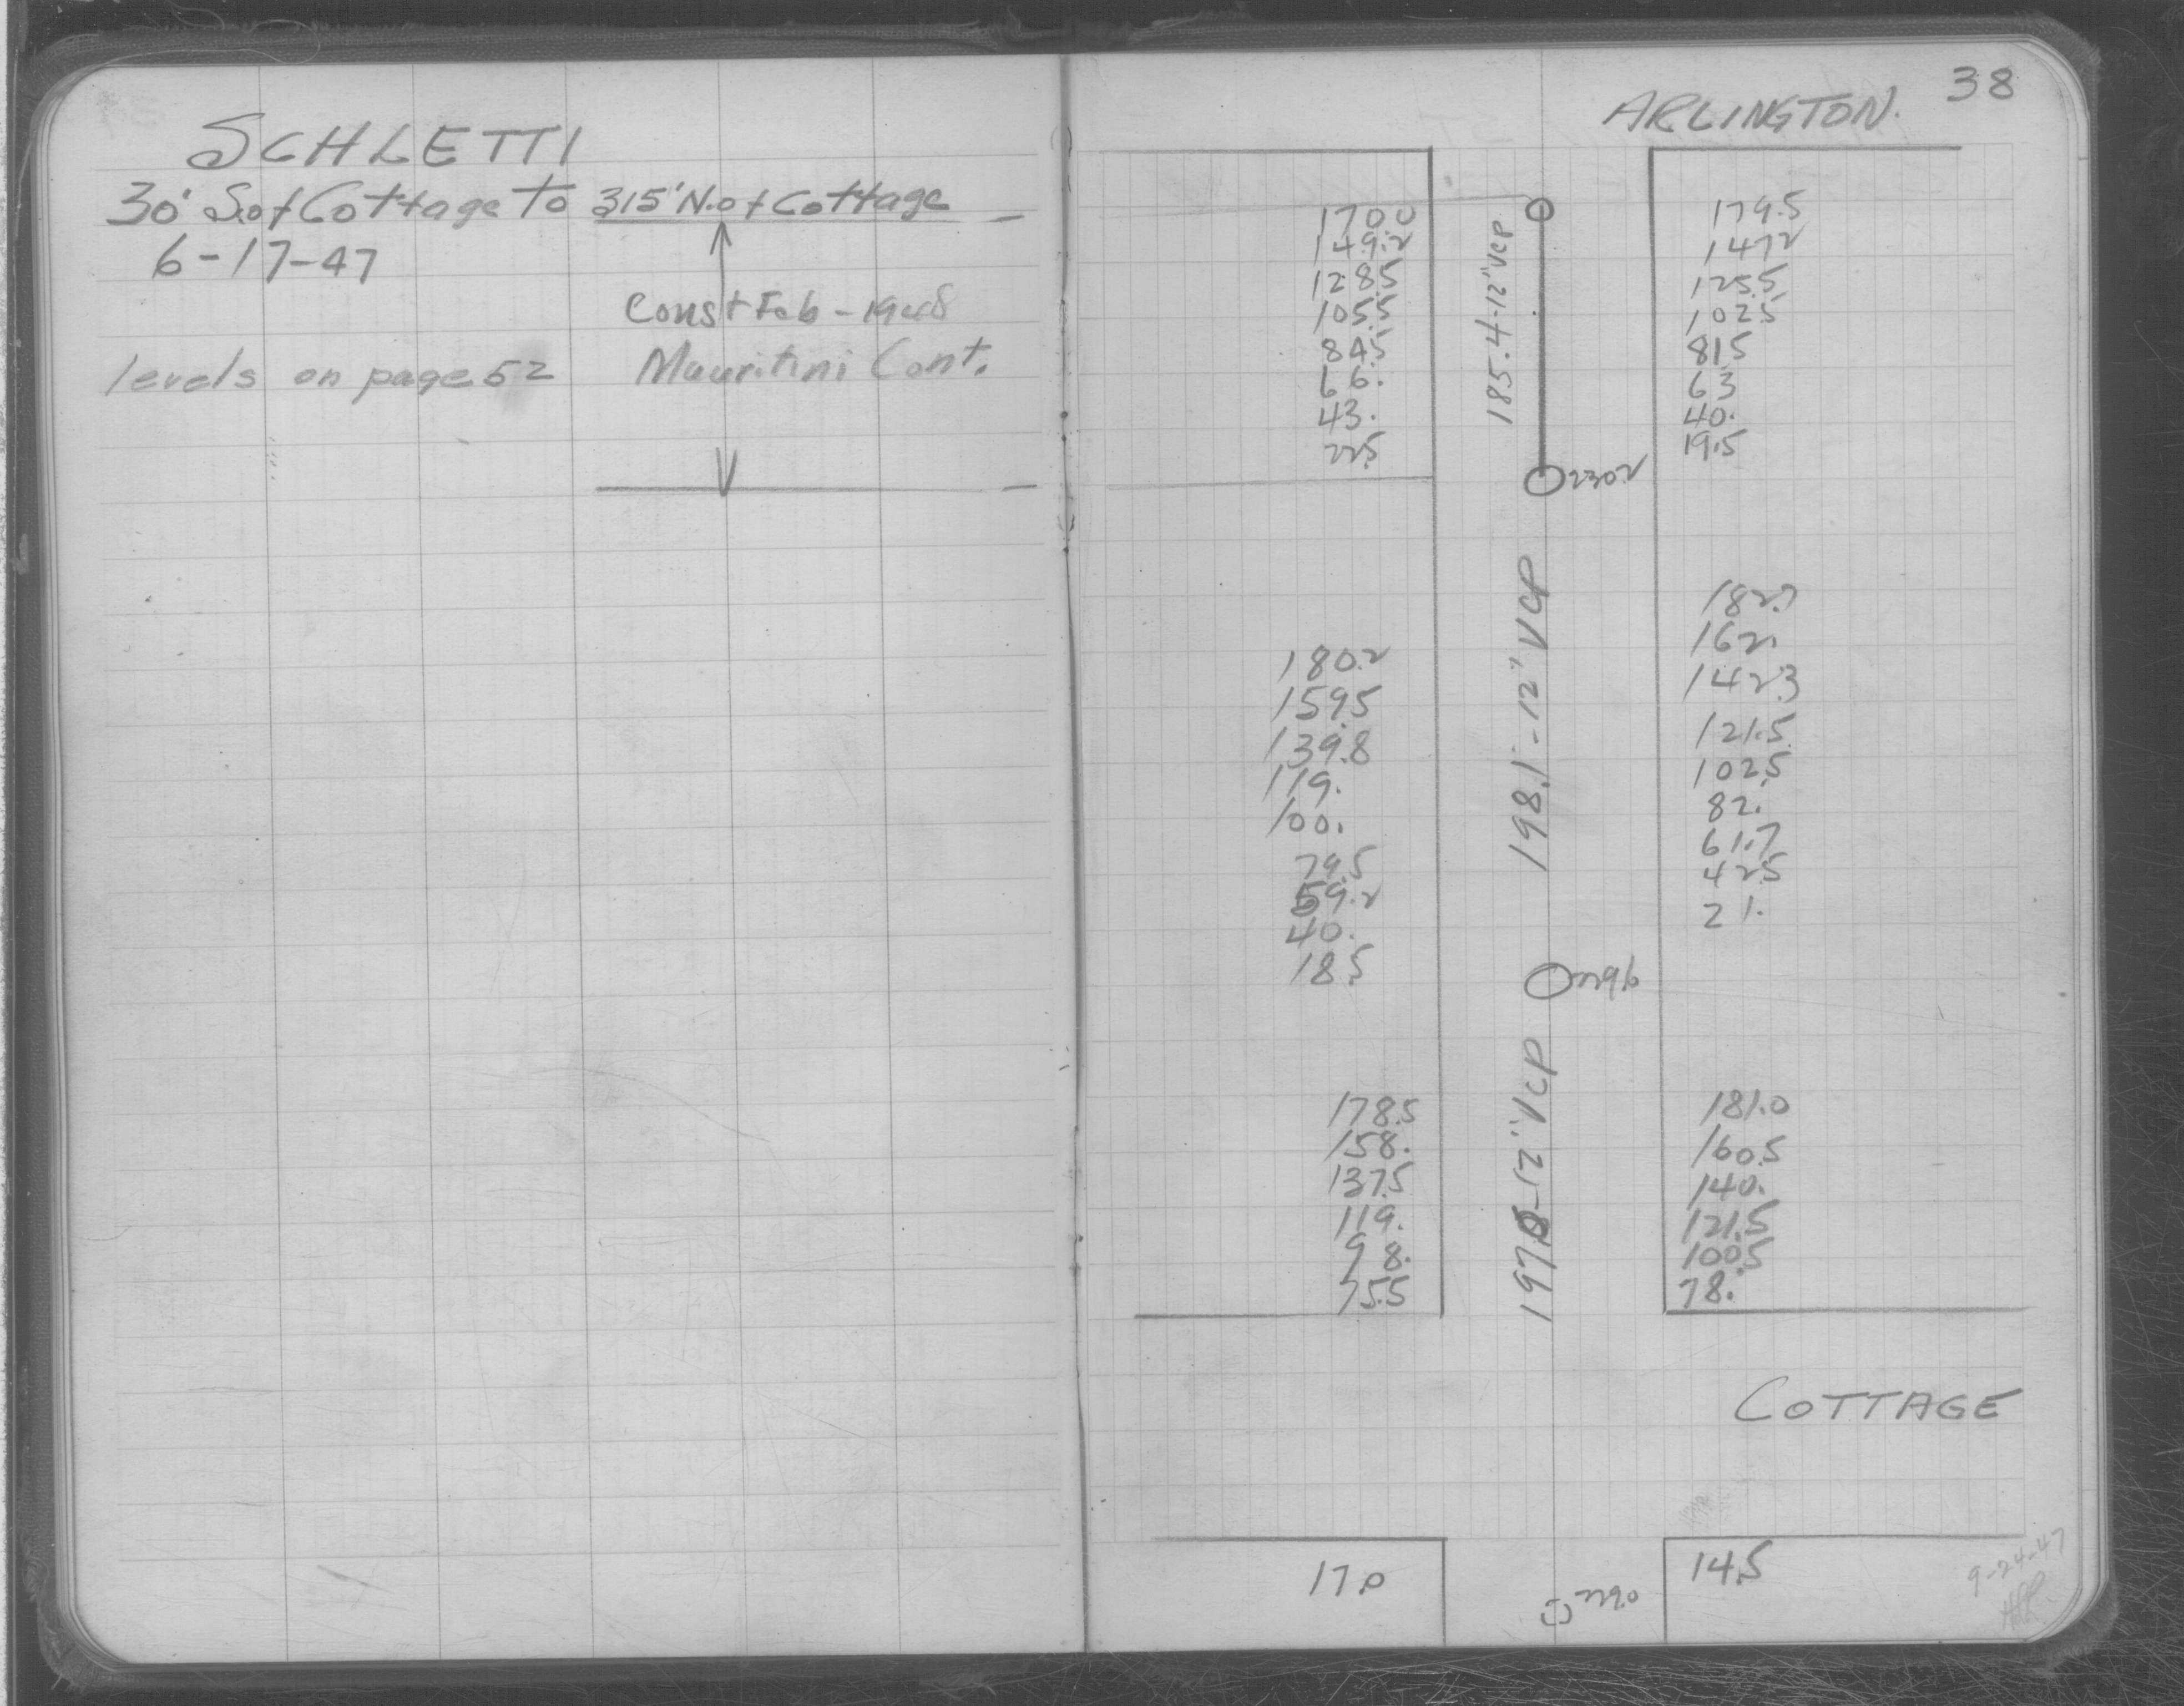 SCHLETTI
30' S. of Cottage to 315' N. of Cottage
6-17-47
Const Feb - 1948
levels on page 52
Mauritini Cont.
38
ARLINGTON.
170.0
149.2
128.5
105.5
84.5
66.
43.
22.5
185.4-12" VCP
179.5
147.2
125.5
102.5
81.5
63
40.
19.5
230.2
180.2
159.5
139.8
119.
100.
79.5
59.2
40.
18.5
198.1-12" VCP
182.7
162.
142.3
121.5
102.5
82.
61.7
42.5
21.
229.6
178.5
158.
137.5
119.
98.
75.5
197.0-12" VCP
181.0
160.5
140.
121.5
100.5
78.
COTTAGE
17.0
229.0
14.5
9-24-47